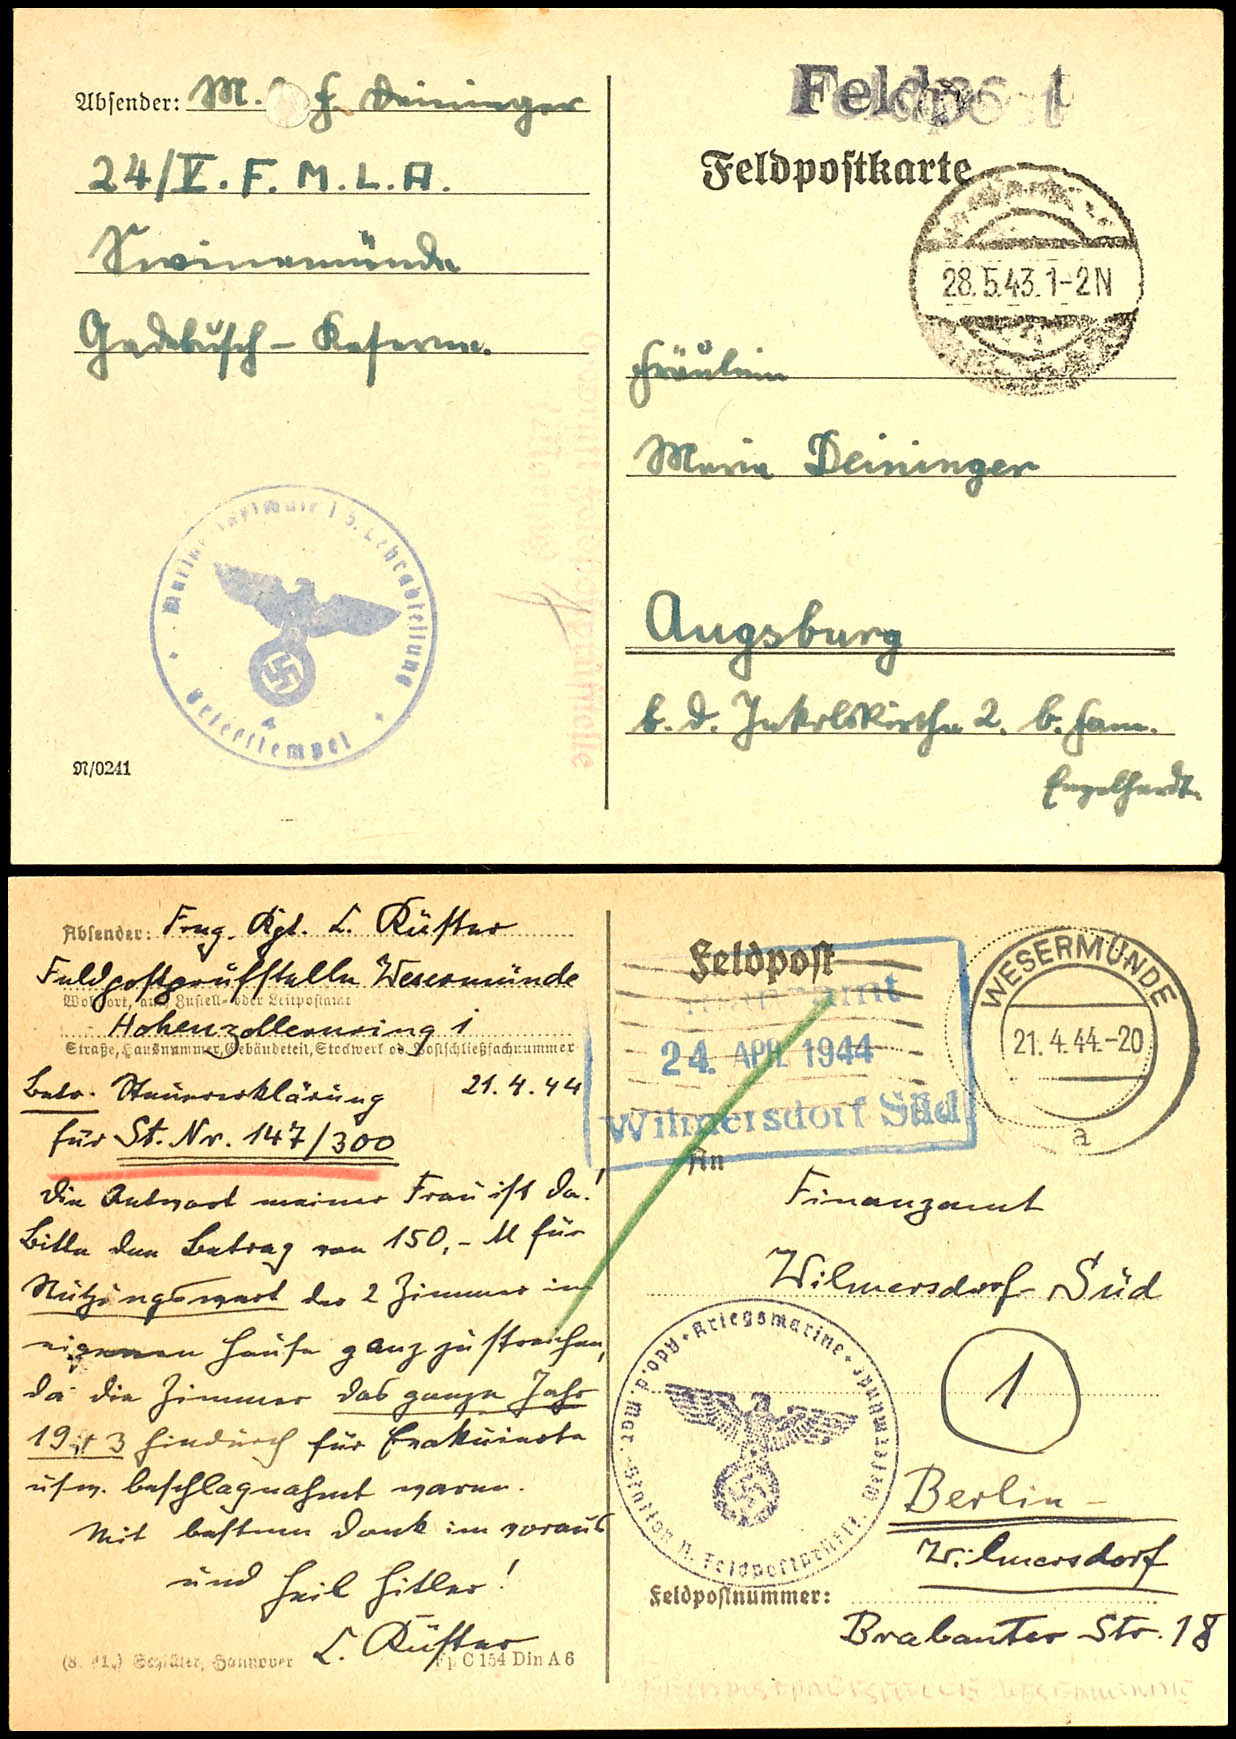 Absender: M. H. f. Deininger
24/V. F. M. L. A.
Swinemünde
Gadebusch - Kaserne.
N/0241
Briefstempel
Feldpost
Feldpostkarte
28.5.43.1-2N
Fräulein
Maria Deininger
Augsburg
b. d. Jakobskirche 2. b. Fam.
Engelhardt.
Absender: Frag. Kpt. L. Rüster
Feldpostprüfstelle Wesermünde
Wohnort, auch Zustell- oder Leitpostamt
Hohenzollernring 1
Straße, Hausnummer, Gebäudeteil, Stockwerk od. Postschließfachnummer
Betr. Steuererklärung 21.4.44
für St. Nr. 147/300
Die Antwort meiner Frau ist da!
Bitte den Betrag von 150,- M für
Nutzungswert der 2 Zimmer im
eigenen Hause ganz zu streichen,
da die Zimmer das ganze Jahr
1943 hindurch für Evakuierte
usw. beschlagnahmt waren.
Mit bestem Dank im voraus
und Heil Hitler!
L. Rüster
(8. 41.) Schlüter, Hannover Fp C 154 Din A 6
Feldpost
Finanzamt
24. APR. 1944
Wilmersdorf Süd
WESERMÜNDE
21.4.44.-20
a
An
Finanzamt
Wilmersdorf-Süd
1
Kriegsmarine
Berlin-
Wilmersdorf
Feldpostnummer:
Brabanter Str. 18